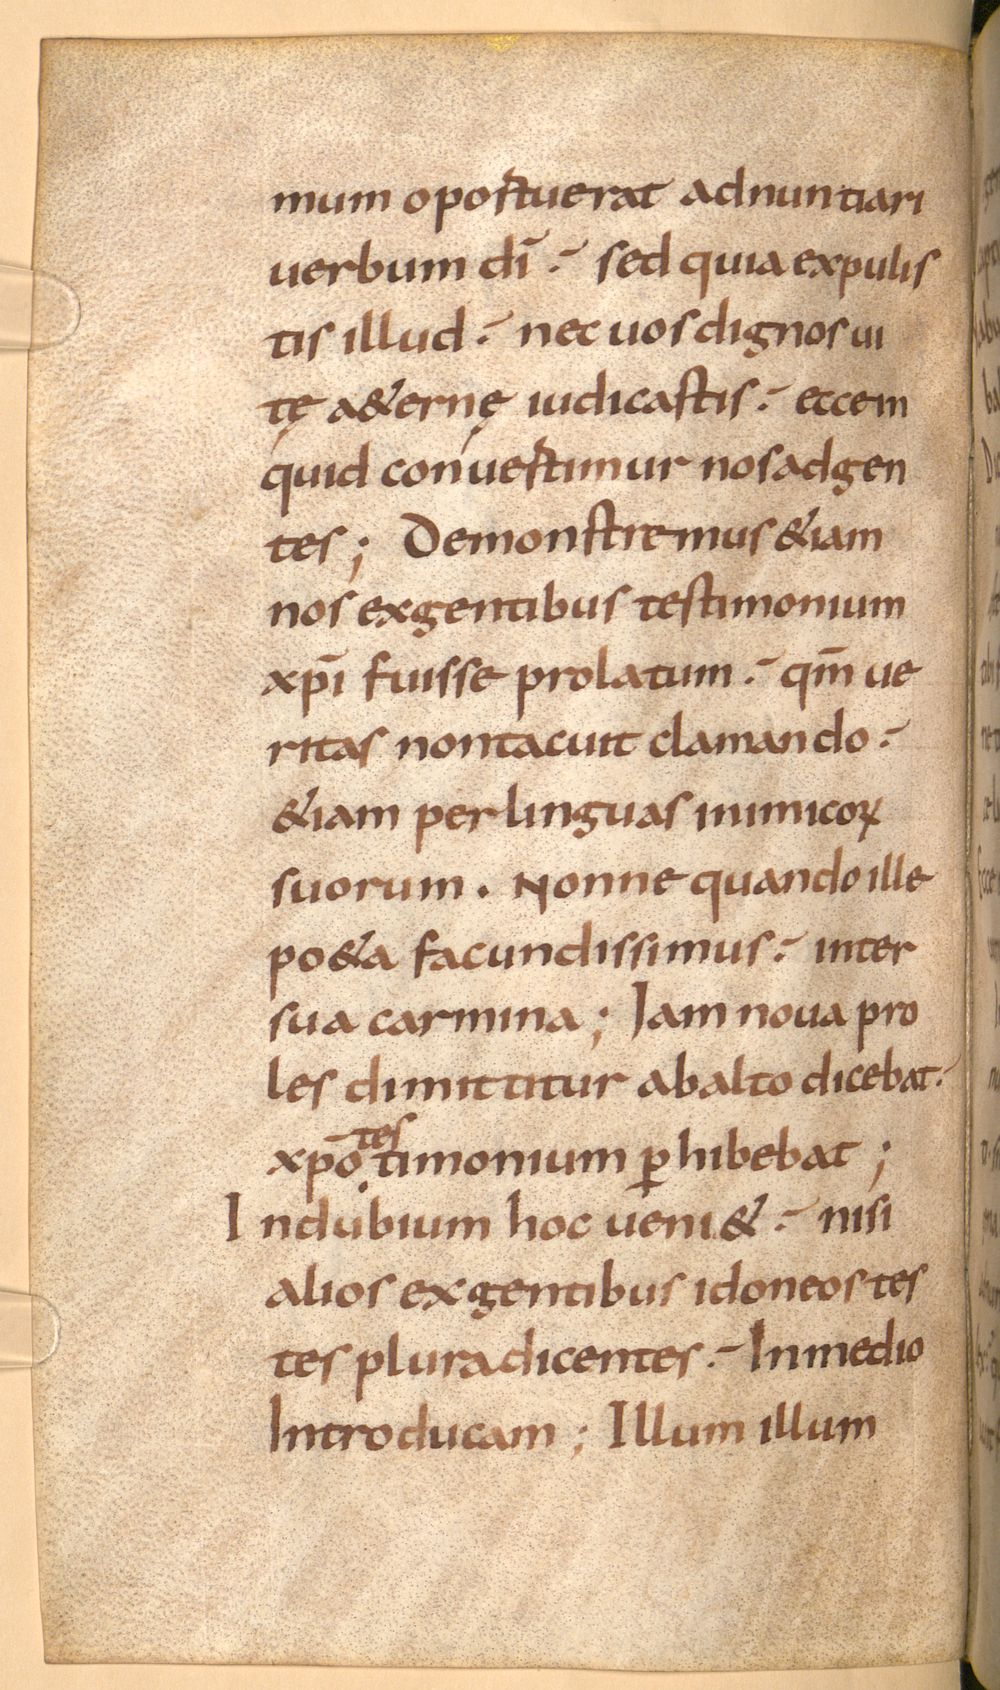 mum opostuerat adnuntiari
uerbum dī :- sed quia expulis
tis illud :- nec uos dignos ui
tę a&ernę iudicastis :- etcem
quid conuestimur nos ad gen
tes ; Demonstremus &iam
nos ex gentibus testimonium
xp̄i fuisse prolatum :- qm̄ ue
ritas non tacuit clamando :-
&iam per linguas inimicoꝝ
suorum . Nonne quando ille
po&a facundissimus :- inter
sua carmina ; Iam noua pro
les dimittitur ab alto dicebat :-
xp̄o testimonium ꝑhibebat ;
In dubium hoc ueni& :- nisi
alios ex gentibus idoneos tes
tes plura dicentes :- In medio
Introducam ; Illum illum